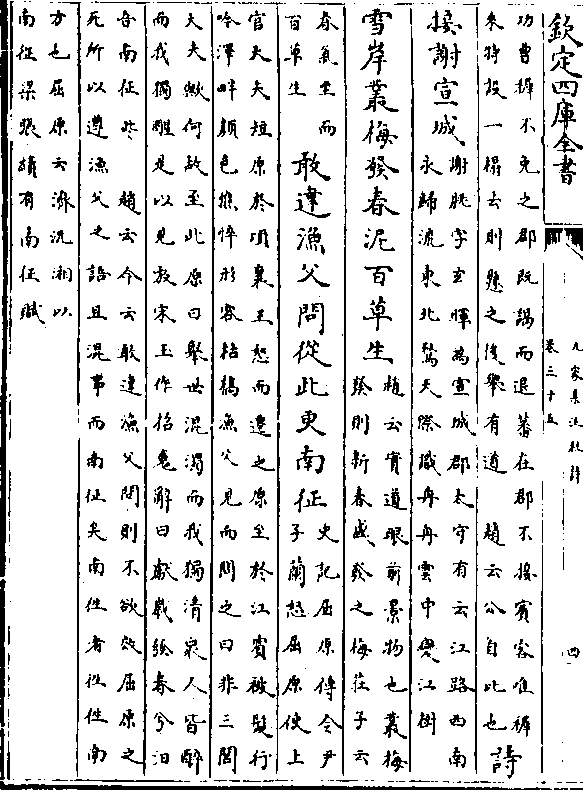 欽定四庫全書
九家集注杜詩
卷三十五
四
功曹穉不免之郡既謁而退蕃在郡不接賓客唯穉
來特設一榻去則懸之後舉有道 趙云公自此也
詩
接謝宣城
謝朓字玄暉為宣城郡太守有云江路西南
永歸流東北騖天際識舟舟雲中變江樹
雪岸叢梅發春泥百草生
趙云實道眼前景物也叢梅
發則新春盛發之梅莊子云
春氣至而
百草生
敢違漁父問從此更南征
史記屈原傳令尹
子蘭怒屈原使上
官大夫短原於頃襄王怒而遷之原至於江賓被髮行
吟澤畔顏色憔悴形容枯槁漁父見而問之曰非三閭
大夫歟何故至此原曰舉世混濁而我獨清衆人皆醉
而我獨醒是以見放宋玉作招魂解曰獻歲發春兮汩
吾南征些 趙云今云敢違漁父問則不欲效屈原之
死所以遵漁父之語且混事而南征矣南征者往往南
方也屈原云濟沅湘以
南征梁張纘有南征賦